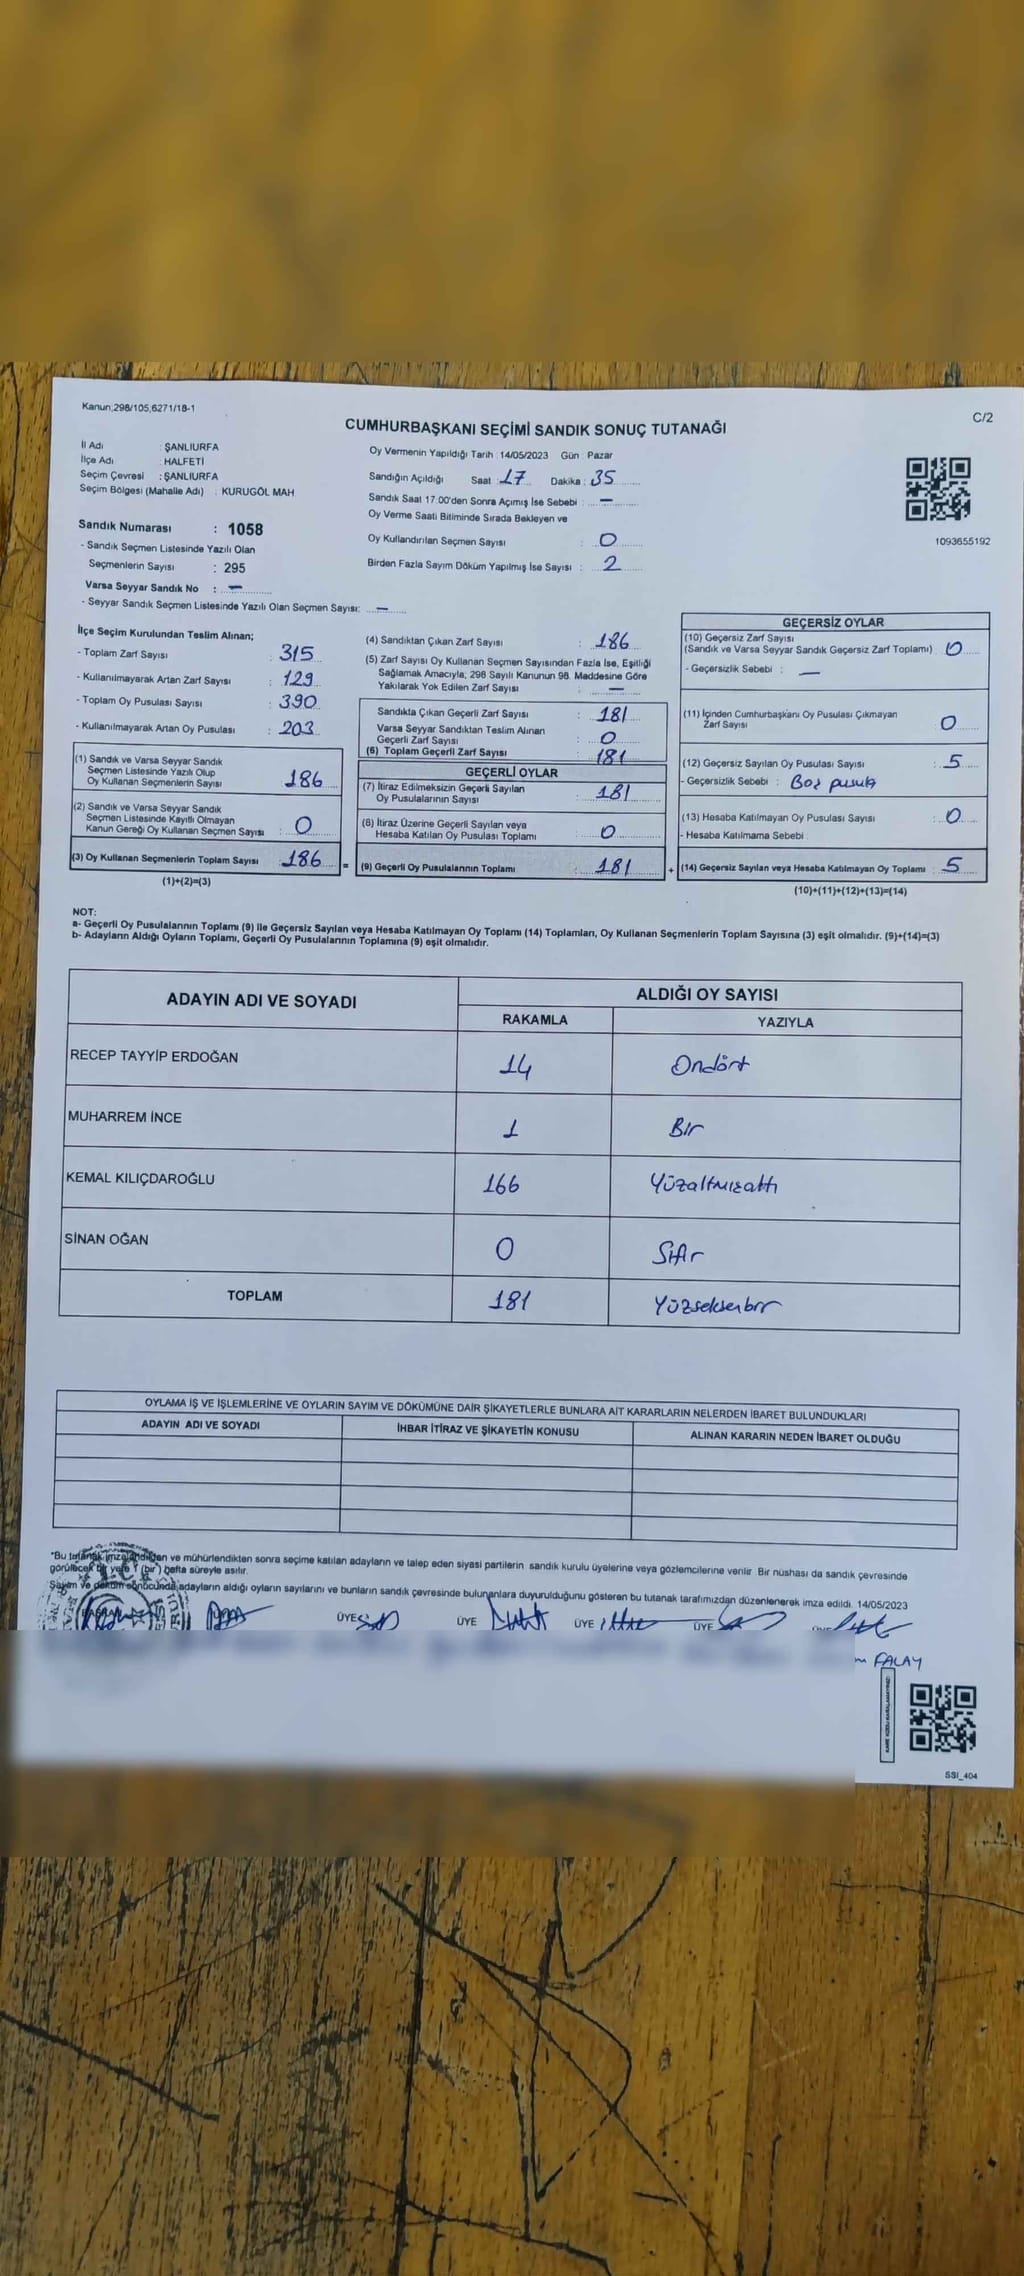 Kanun;298/105,6271/18-1
C/2
CUMHURBAŞKANI SEÇİMİ SANDIK SONUÇ TUTANAĞI
İl Adı : ŞANLIURFA
İlçe Adı : HALFETİ
Seçim Çevresi : ŞANLIURFA
Seçim Bölgesi (Mahalle Adı) : KURUGÖL MAH
Sandık Numarası : 1058
- Sandık Seçmen Listesinde Yazılı Olan
Seçmenlerin Sayısı : 295
Varsa Seyyar Sandık No : —
- Seyyar Sandık Seçmen Listesinde Yazılı Olan Seçmen Sayısı: —
Oy Vermenin Yapıldığı Tarih : 14/05/2023 Gün : Pazar
Sandığın Açıldığı Saat : 17 Dakika : 35
Sandık Saat 17:00'den Sonra Açımış İse Sebebi : —
Oy Verme Saati Bitiminde Sırada Bekleyen ve
Oy Kullandırılan Seçmen Sayısı : 0
Birden Fazla Sayım Döküm Yapılmış İse Sayısı : 2
1093655192
İlçe Seçim Kurulundan Teslim Alınan;
- Toplam Zarf Sayısı : 315
- Kullanılmayarak Artan Zarf Sayısı : 129
- Toplam Oy Pusulası Sayısı : 390
- Kullanılmayarak Artan Oy Pusulası : 203
(1) Sandık ve Varsa Seyyar Sandık
Seçmen Listesinde Yazılı Olup
Oy Kullanan Seçmenlerin Sayısı : 186
(2) Sandık ve Varsa Seyyar Sandık
Seçmen Listesinde Kayıtlı Olmayan
Kanun Gereği Oy Kullanan Seçmen Sayısı : 0
(3) Oy Kullanan Seçmenlerin Toplam Sayısı : 186 =
(1)+(2)=(3)
(4) Sandıktan Çıkan Zarf Sayısı : 186
(5) Zarf Sayısı Oy Kullanan Seçmen Sayısından Fazla İse, Eşitliği
Sağlamak Amacıyla; 298 Sayılı Kanunun 98. Maddesine Göre
Yakılarak Yok Edilen Zarf Sayısı : —
Sandıkta Çıkan Geçerli Zarf Sayısı : 181
Varsa Seyyar Sandıktan Teslim Alınan
Geçerli Zarf Sayısı : 0
(6) Toplam Geçerli Zarf Sayısı : 181
GEÇERLİ OYLAR
(7) İtiraz Edilmeksizin Geçerli Sayılan
Oy Pusulalarının Sayısı : 181
(8) İtiraz Üzerine Geçerli Sayılan veya
Hesaba Katılan Oy Pusulası Toplamı : 0
(9) Geçerli Oy Pusulalarının Toplamı : 181 +
GEÇERSİZ OYLAR
(10) Geçersiz Zarf Sayısı
(Sandık ve Varsa Seyyar Sandık Geçersiz Zarf Toplamı) : 0
- Geçersizlik Sebebi : —
(11) İçinden Cumhurbaşkanı Oy Pusulası Çıkmayan
Zarf Sayısı 0
(12) Geçersiz Sayılan Oy Pusulası Sayısı : 5
- Geçersizlik Sebebi : Boş pusula
(13) Hesaba Katılmayan Oy Pusulası Sayısı : 0
- Hesaba Katılmama Sebebi
(14) Geçersiz Sayılan veya Hesaba Katılmayan Oy Toplamı : 5
(10)+(11)+(12)+(13)=(14)
NOT:
a- Geçerli Oy Pusulalarının Toplamı (9) ile Geçersiz Sayılan veya Hesaba Katılmayan Oy Toplamı (14) Toplamları, Oy Kullanan Seçmenlerin Toplam Sayısına (3) eşit olmalıdır. (9)+(14)=(3)
b- Adayların Aldığı Oyların Toplamı, Geçerli Oy Pusulalarının Toplamına (9) eşit olmalıdır.
ADAYIN ADI VE SOYADI ALDIĞI OY SAYISI
RAKAMLA YAZIYLA
RECEP TAYYİP ERDOĞAN 14 Ondört
MUHARREM İNCE 1 Bir
KEMAL KILIÇDAROĞLU 166 Yüzaltmışaltı
SİNAN OĞAN 0 Sıfır
TOPLAM 181 Yüzseksenbir
OYLAMA İŞ VE İŞLEMLERİNE VE OYLARIN SAYIM VE DÖKÜMÜNE DAİR ŞİKAYETLERLE BUNLARA AİT KARARLARIN NELERDEN İBARET BULUNDUKLARI
ADAYIN ADI VE SOYADI İHBAR İTİRAZ VE ŞİKAYETİN KONUSU ALINAN KARARIN NEDEN İBARET OLDUĞU
*Bu tutanak imzalandıktan ve mühürlendikten sonra seçime katılan adayların ve talep eden siyasi partilerin sandık kurulu üyelerine veya gözlemcilerine verilir. Bir nüshası da sandık çevresinde
görülecek bir yere 1 (bir) hafta süreyle asılır.
Sayım ve döküm sonucunda adayların aldığı oyların sayılarını ve bunların sandık çevresinde bulunanlara duyurulduğunu gösteren bu tutanak tarafımızdan düzenlenerek imza edildi. 14/05/2023
BAŞKAN ÜYE ÜYE ÜYE ÜYE
FALAY
KARE KODU KARALAMAYINIZ!
SSI_404